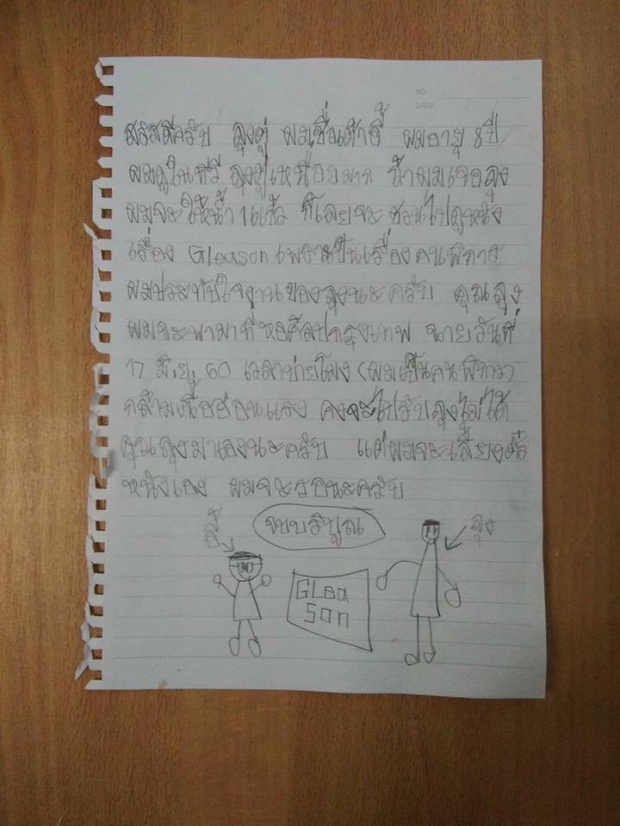 NO.
DATE
สวัสดีครับ ลุงตู่ ผมชื่อเต้าอี้ ผมอายุ 8 ปี
ผมดูในทีวี ลุงตู่เหนื่อยมาก ถ้าผมเจอลุง
ผมจะให้น้ำ 1 แก้ว ก็เลยจะชวนไปดูหนัง
เรื่อง Gleason เพราะเป็นเรื่องคนพิการ
ผมประทับใจงานของลุงนะครับ คุณลุง
ผมจะพามาที่หอศิลปกรุงเทพ ฉายวันที่
17 มิ.ย. 60 เวลาบ่ายโมง (ผมเป็นคนพิการ)
กล้ามเนื้ออ่อนแรง คงจะไปรับลุงไม่ได้
คุณลุงมาเองนะครับ แต่ผมจะเลี้ยงตั๋ว
หนังเอง ผมจะรอนะครับ
จบบริบูรณ์
ลุง
GLea
Son